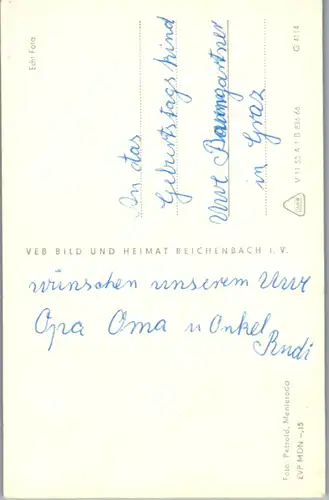 Echt Foto
An das
Geburtstagskind
Uwe Baumgartner
in Graz
V 11 50 A 1 B 836/66
G 4114
VEB BILD UND HEIMAT REICHENBACH i. V.
wünschen unserem Uwe
Opa Oma u Onkel
Rudi
Foto: Petzold, Menteroda
EVP MDN -,15